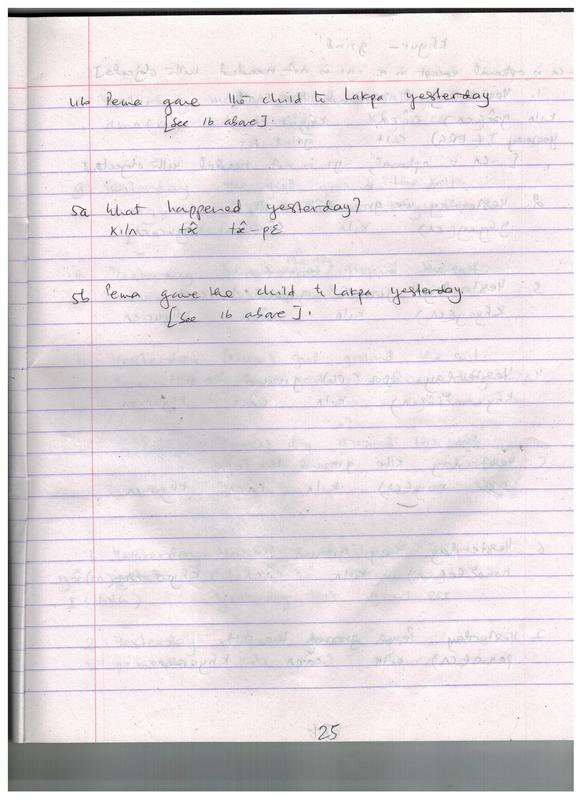 4b Pema gave the child to Lakpa yesterday
[See 1b above].
5a What happened yesterday?
kilʌ tɜ̂ tɜ̂-pɛ
5b Pema gave the child to Lakpa yesterday
[See 1b above].
25